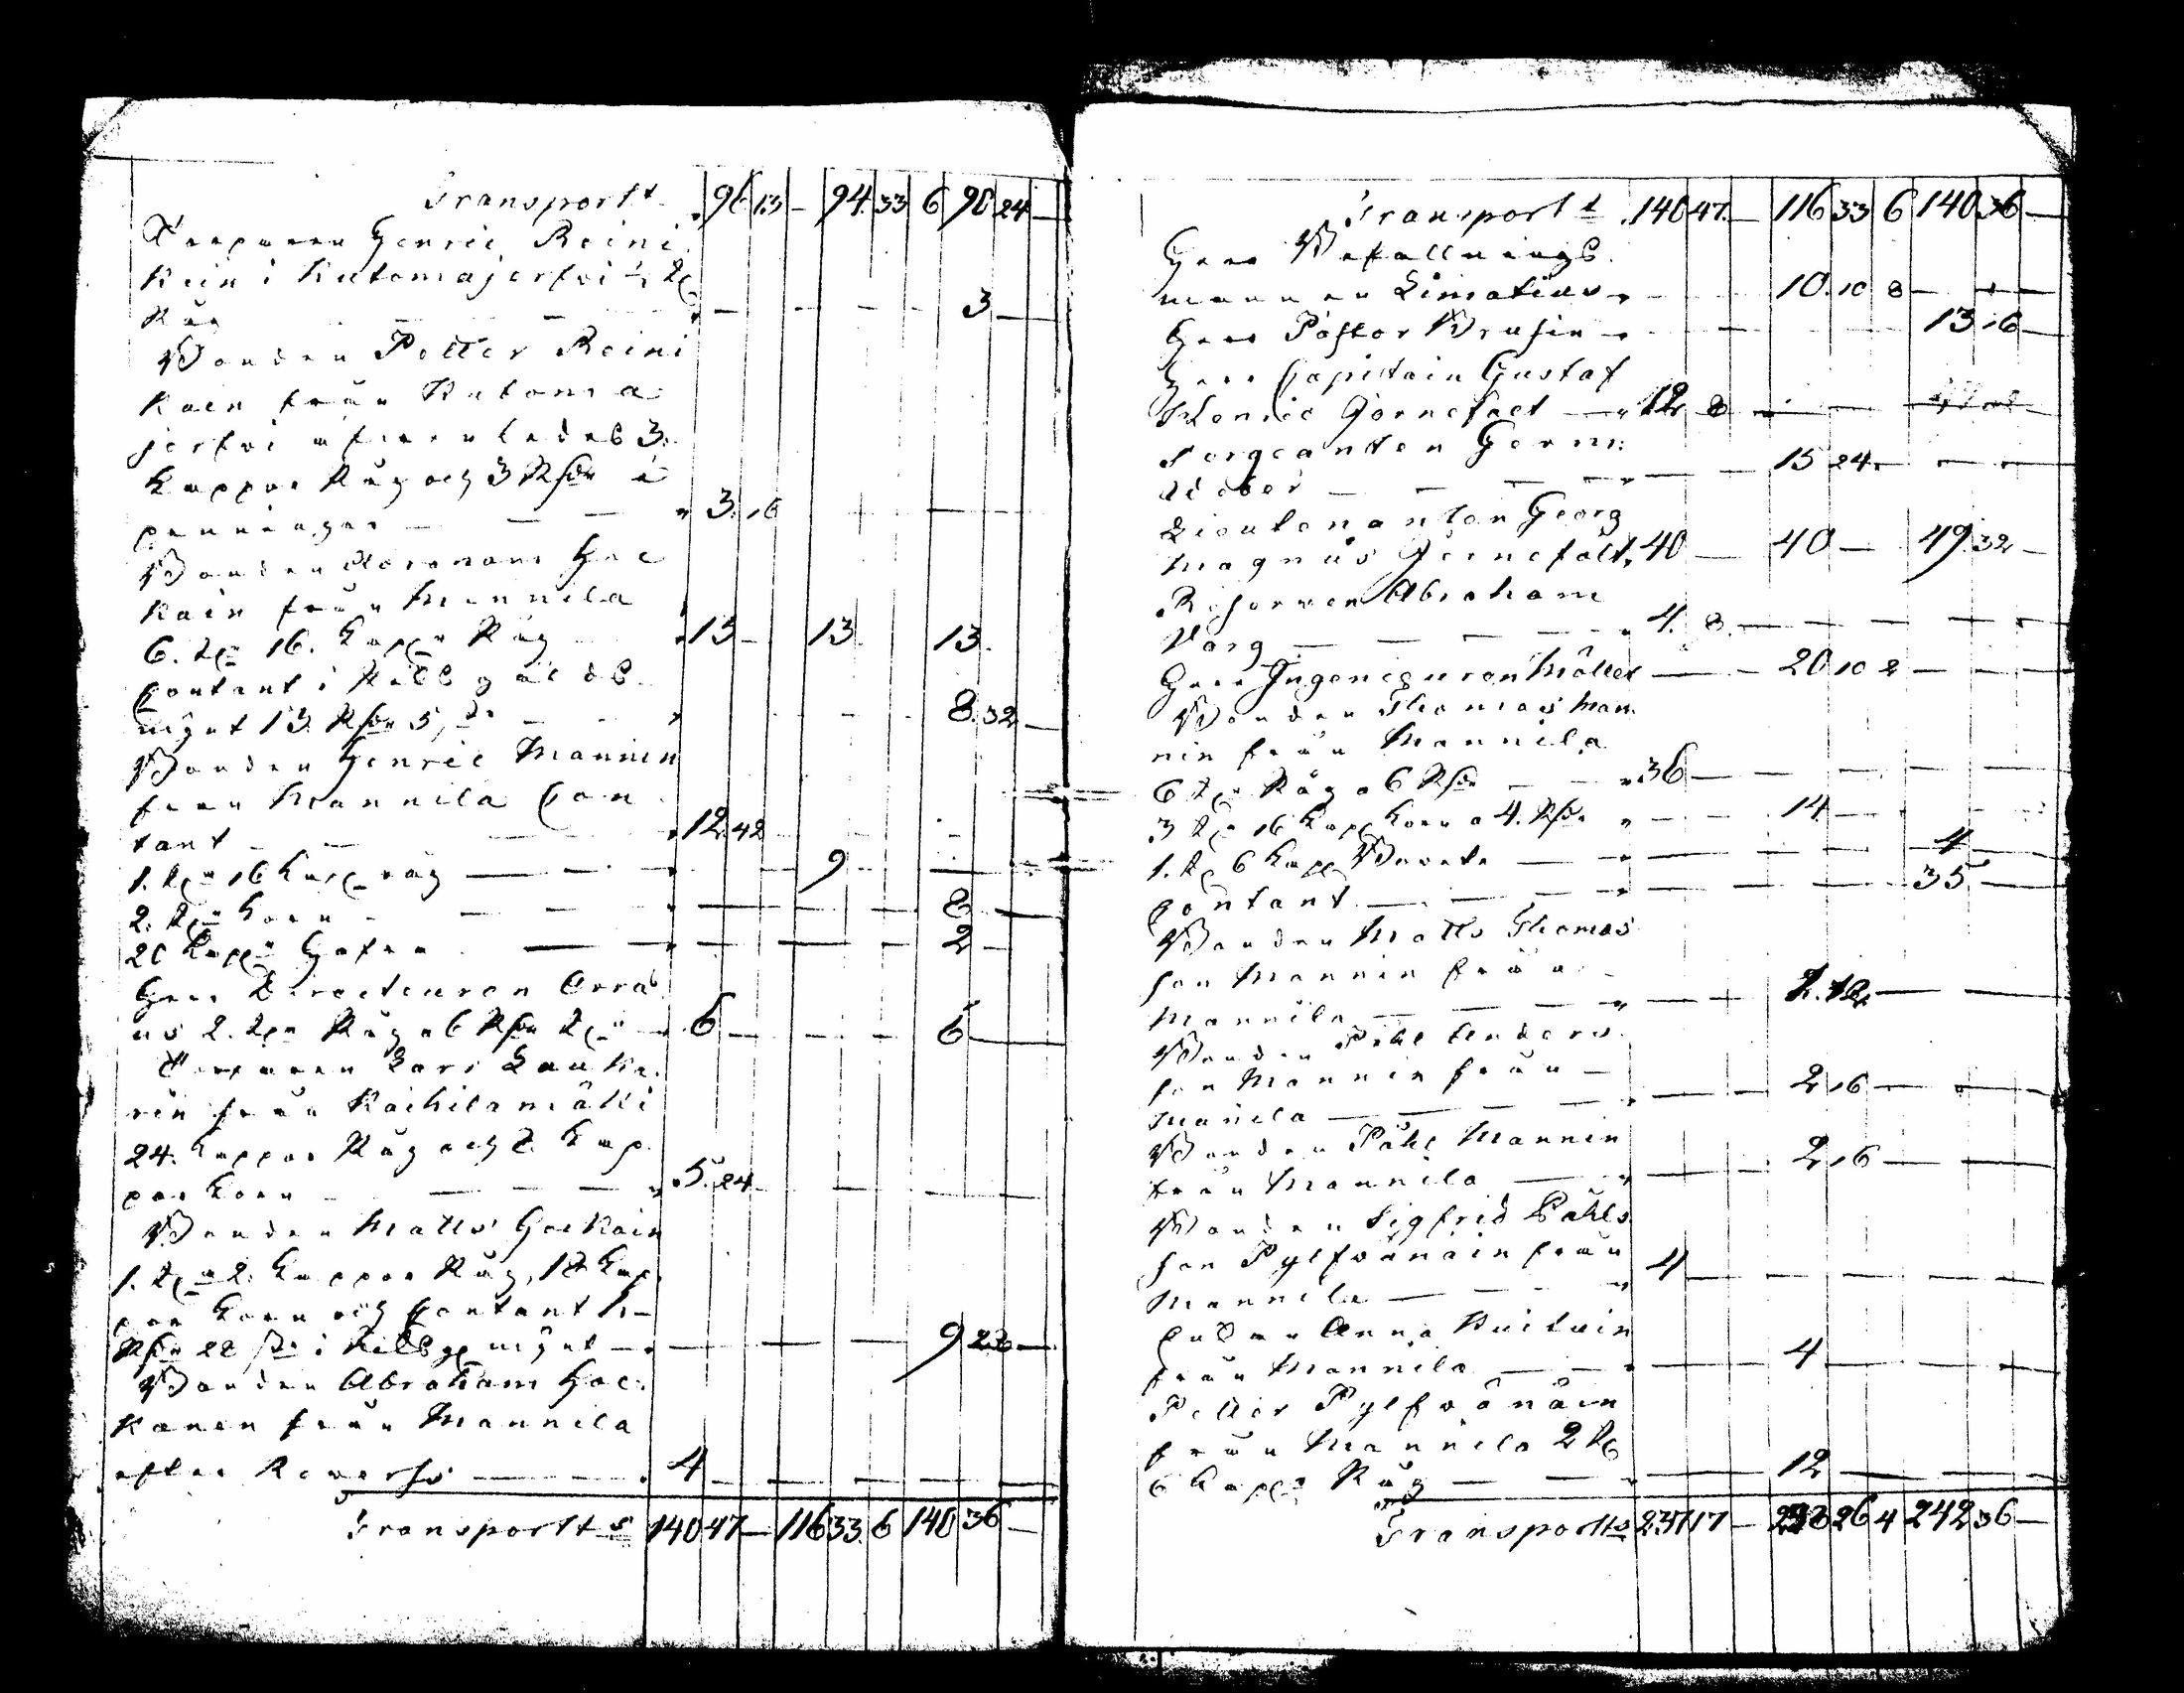 Transportt 96 13 – 94 33 6 90 24 –
Torparen Henric Reini
kain i Kutemajerfvi ½ T
Råg – – – 3 –
Bonden Petter Reini
kain från Kutema
jerfvi afhandledes 3
kappar Råg och 3 Rdr i
penningar – – – 3. 16
Bonden Abraham Hac
kain från Mannila
6. T:r 16. kapp:r Råg 13 – 13 13.
Contant i Riksgälds
mynt 13 Rdr 5, – – 8. 32 –
Bonden Henric Mannin
från Mannila Con
tant – – 12. 42
1. T:a 16 kapp:r råg – – 9 –
2. T:r korn – – – 8 –
20 kapp:r Hafra – – 2 –
Herr Directeuren Orra
us 2. T:r Råg a 6 Rdr T:n 6 – – – 6 –
Torparen Lars Lauka
rin från Kaihilamäki
24. kappar Råg och 2 kap
par korn – – – 5. 24 –
Bonden Matts Hackain
1. T:a 2. kappar Råg, 12 kap
par korn och Contant 1
Rdr 22 s i Riksg mynt – – – 9 23 –
Bonden Abraham Hac
kanen från Mannila
efter Reverss – 4 – – –
Transportt s 140 47 – 116 33. 6 140 36 –
Transportt 140 47. – 116 33 6 140 36 –
Herr Befallnings
mannen Limatius – 10. 10 8 – –
Herr Pastor Brusin – – – 13 16 –
Herr Capitain Gustaf
Henric Jernefelt – 12 8 – –
Sergeanten Herm:
– – – 15 24. – – –
Lieutenanten Georg
Magnus Jernefält, 40 – 40 – 49 32 –
Abraham
Varg – – – 4. 8. – – –
Herr Ingenieuren Möller – – 20 10 2 – – –
Bonden Thomas Man
nin från Mannila
6 T:r Råg a 6 Rdr – – 36 – – –
3 T:r 16 kapp korn a 4. Rdr – – 14 – – –
1. T 6 kapp – – – 4 –
Contant – – – 35 –
Bonden Matts Thomas
son Mannin från
Mannila – – – 2. – –
Bonden Påhl Anders
son Mannin från –
Manila – – – 2 16 – –
Bonden Påhl Mannin
från Mannila – – 2 16 – –
Bonden Sigfrid Påhls
son Pylfvänäin från
Mannila – – 4 – – –
Anna
från Mannila – – – 4 – –
Petter Pylfvänäin
från Mannila 2 T
6 kapp:r Råg – – – 12 – –
Transportts 237 17 – 26 4 242 36 –